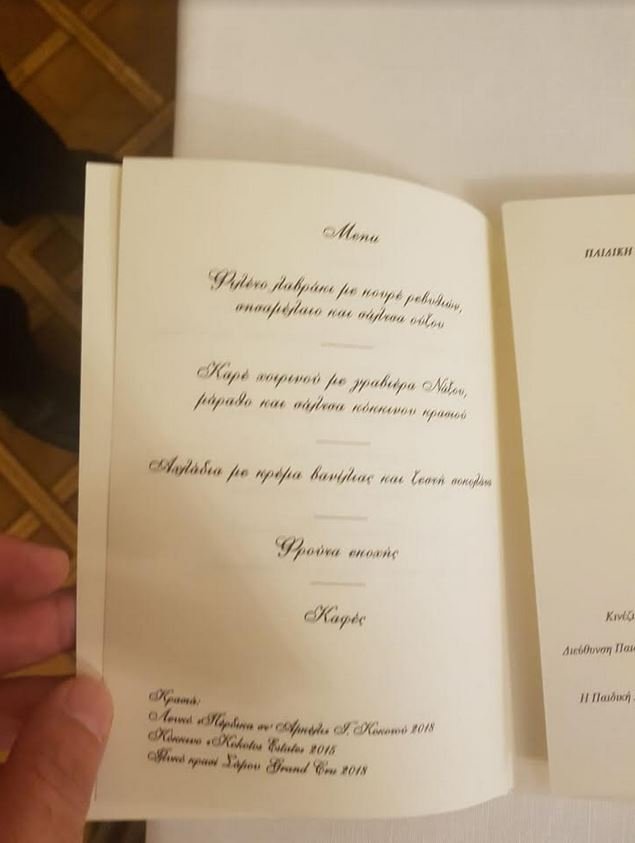 Menu
Φιλέτο λαβράκι με πουρέ ρεβυθιών,
σησαμέλαιο και σάλτσα ούζου
Καρέ χοιρινού με γραβιέρα Νάξου,
μάραθο και σάλτσα κόκκινου κρασιού
Αχλάδια με κρέμα βανίλιας και ζεστή σοκολάτα
Φρούτα εποχής
Καφές
Κρασιά:
Λευκό «Πέρδικα στ' Αμπέλι» Γ. Κοκοτού 2018
Κόκκινο «Kokotos Estate» 2015
Γλυκό κρασί Σάμου Grand Cru 2018
ΠΑΙΔΙΚΗ
Κινέζ
Διεύθυνση Παι
Η Παιδική